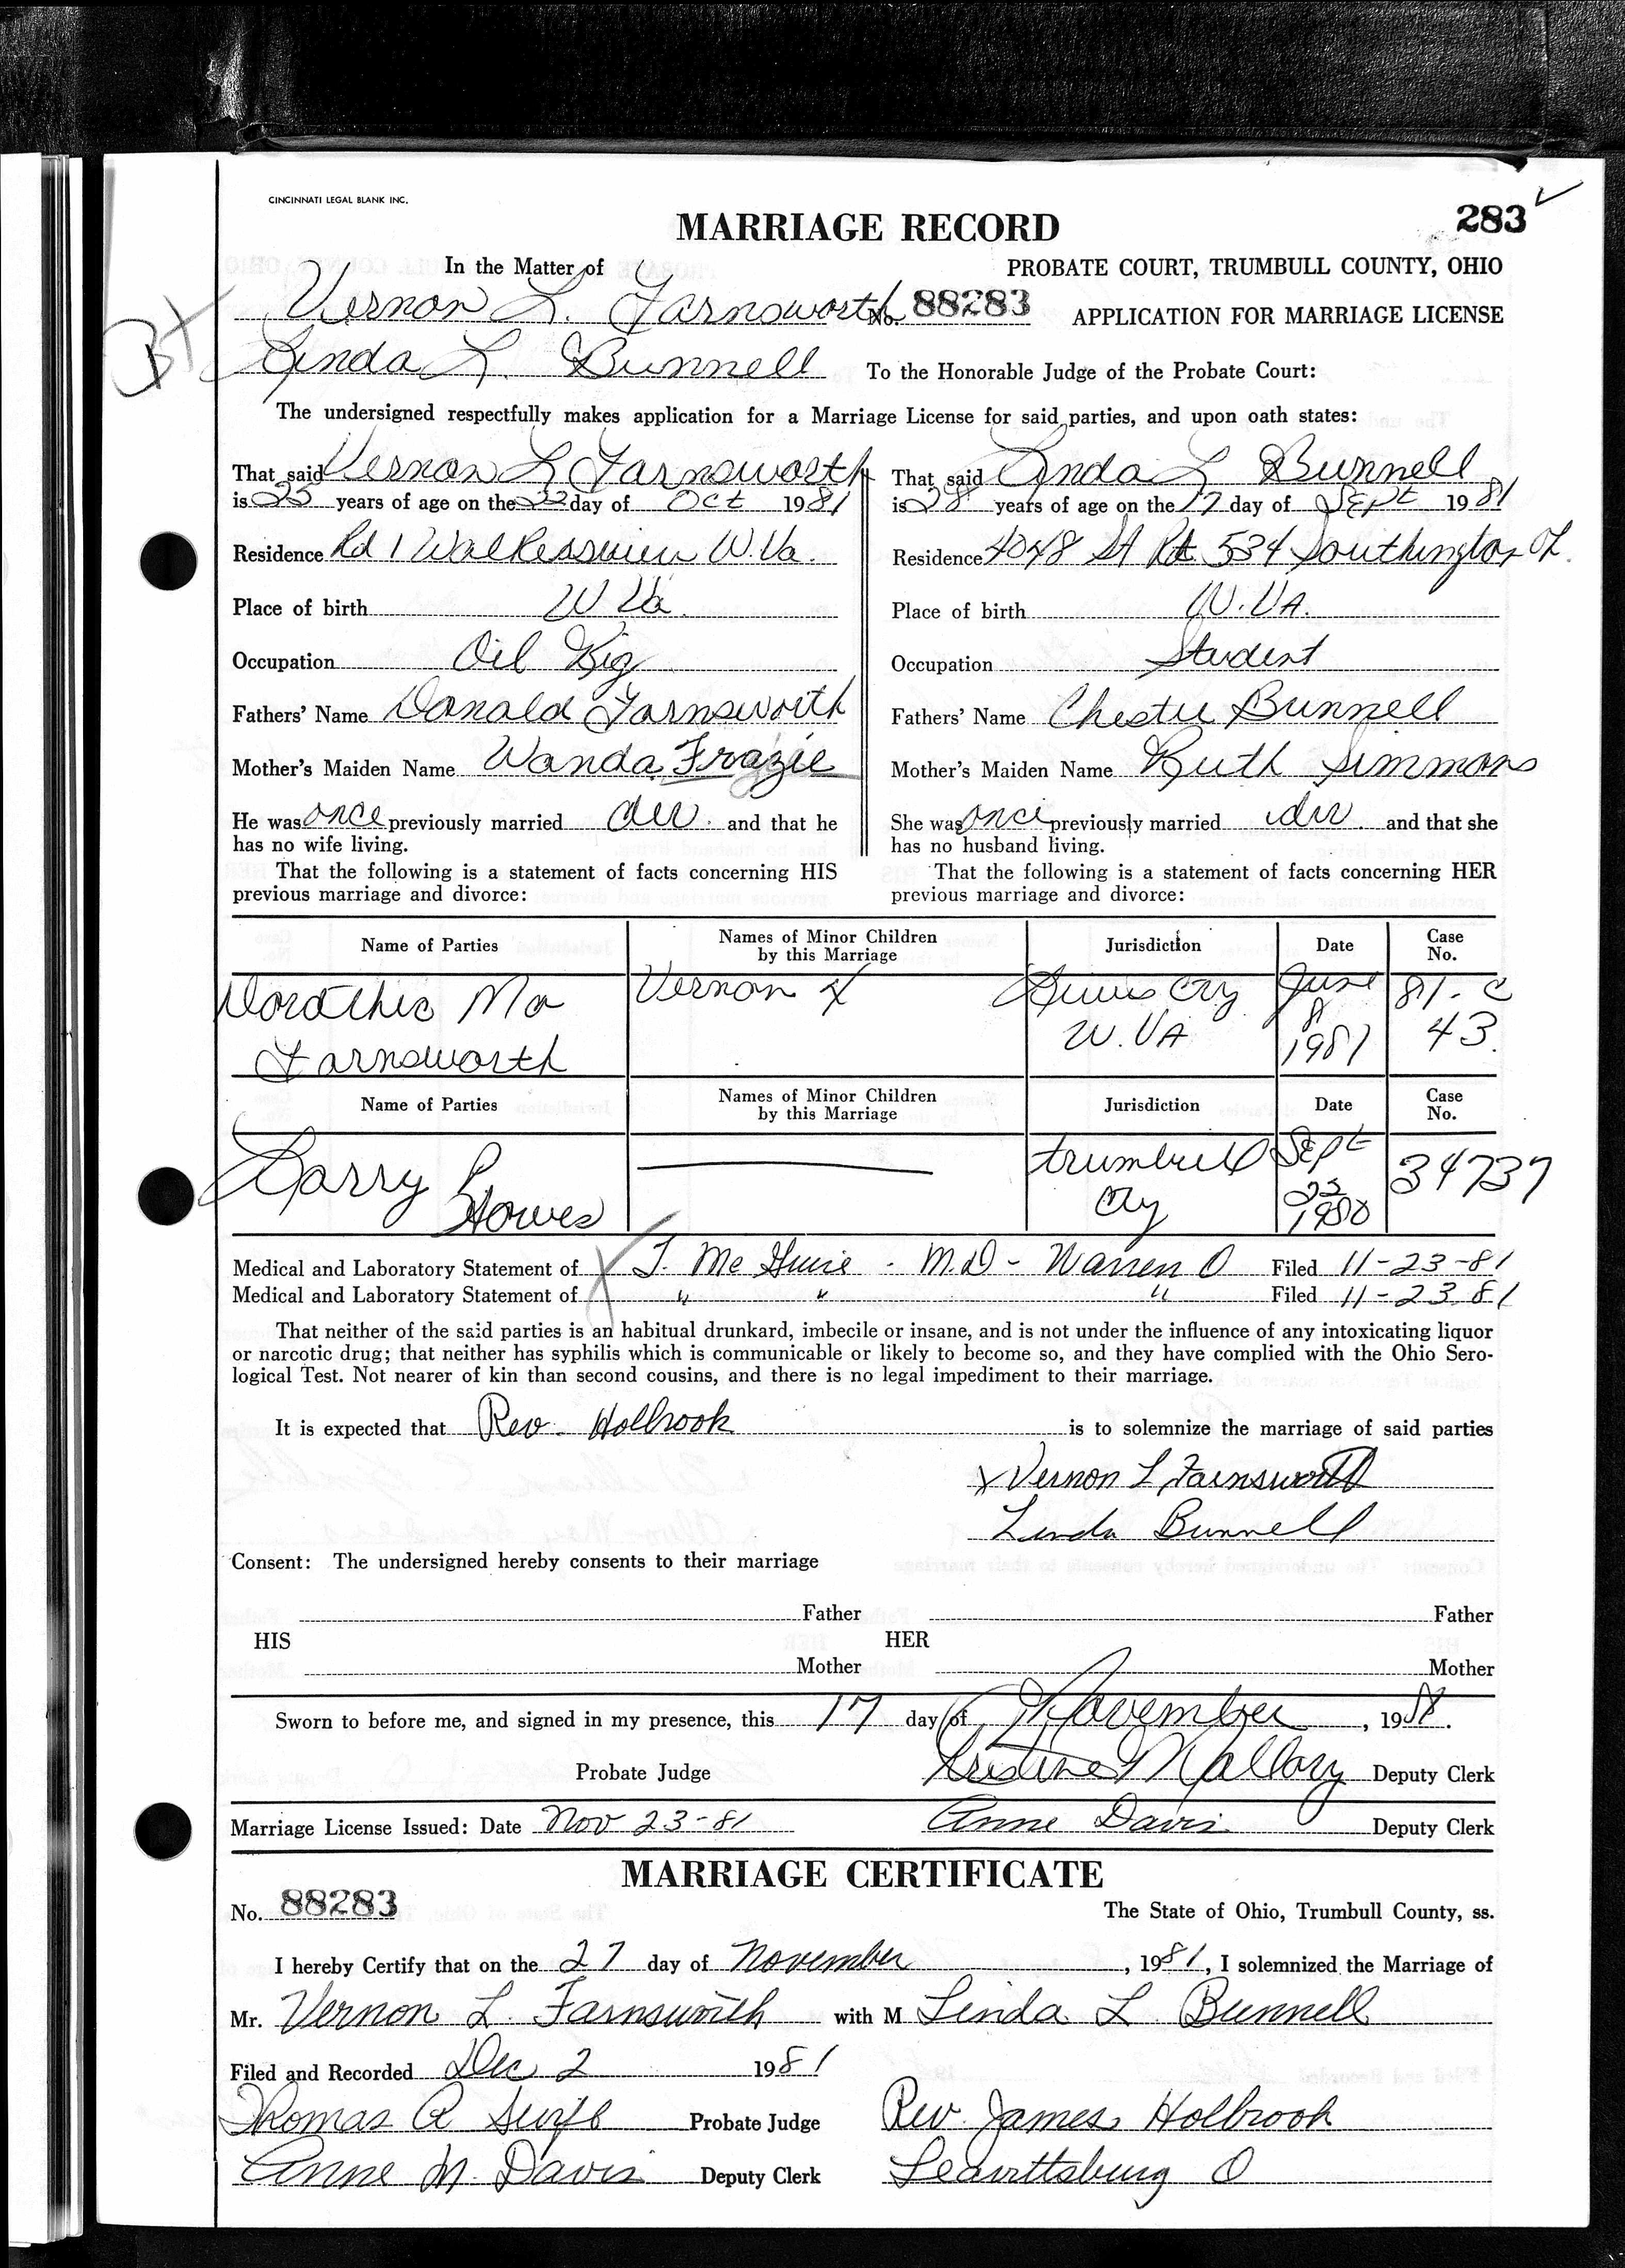 CINCINNATI LEGAL BLANK INC.
283
MARRIAGE RECORD
In the Matter of
PROBATE COURT, TRUMBULL COUNTY, OHIO
Vernon L. Farnsworth No. 88283 APPLICATION FOR MARRIAGE LICENSE
Linda L. Bunnell To the Honorable Judge of the Probate Court:
The undersigned respectfully makes application for a Marriage License for said parties, and upon oath states:
That said Vernon L Farnsworth
is 25 years of age on the 22 day of Oct 1981
Residence Rd 1 W.Va.
Place of birth W Va.
Occupation Oil Rig
Fathers' Name Donald Farnsworth
Mother's Maiden Name Wanda Frazie
He was once previously married div. and that he
has no wife living.
That the following is a statement of facts concerning HIS
previous marriage and divorce:
That said Linda L Bunnell
is 28 years of age on the 17 day of Sept 1981
Residence 4048 St Rt 534 Southington
Place of birth W.VA.
Occupation Student
Fathers' Name Chester Bunnell
Mother's Maiden Name Ruth Simmons
She was once previously married div. and that she
has no husband living.
That the following is a statement of facts concerning HER
previous marriage and divorce:
Name of Parties Names of Minor Children by this Marriage Jurisdiction Date Case No.
Farnsworth Vernon Lewis Cty W.VA June 8 1981 81-C 43
Name of Parties Names of Minor Children by this Marriage Jurisdiction Date Case No.
Larry Howes Trumbull Cty Sept 1980 34737
Medical and Laboratory Statement of T. McGuire - M.D - Warren O Filed 11-23-81
Medical and Laboratory Statement of " " " Filed 11-23.81
That neither of the said parties is an habitual drunkard, imbecile or insane, and is not under the influence of any intoxicating liquor
or narcotic drug; that neither has syphilis which is communicable or likely to become so, and they have complied with the Ohio Sero-
logical Test. Not nearer of kin than second cousins, and there is no legal impediment to their marriage.
It is expected that Rev. Holbrook is to solemnize the marriage of said parties
x Vernon L Farnsworth
Linda Bunnell
Consent: The undersigned hereby consents to their marriage
Father Father
HIS HER
Mother Mother
Sworn to before me, and signed in my presence, this 17 day of November, 1981.
Probate Judge Kristine Mallory Deputy Clerk
Marriage License Issued: Date Nov 23-81 Anne Davis Deputy Clerk
MARRIAGE CERTIFICATE
No. 88283 The State of Ohio, Trumbull County, ss.
I hereby Certify that on the 27 day of November, 1981, I solemnized the Marriage of
Mr. Vernon L. Farnsworth with M Linda L Bunnell
Filed and Recorded Dec 2 1981
Thomas A Swift Probate Judge Rev. James Holbrook
Anne M. Davis Deputy Clerk Leavittsburg O